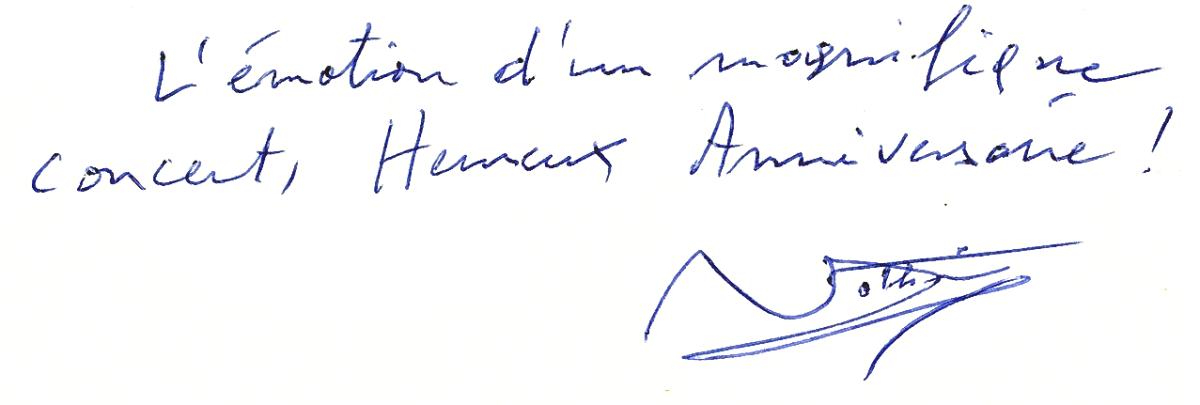 L'émotion d'un magnifique
concert, Heureux Anniversaire !